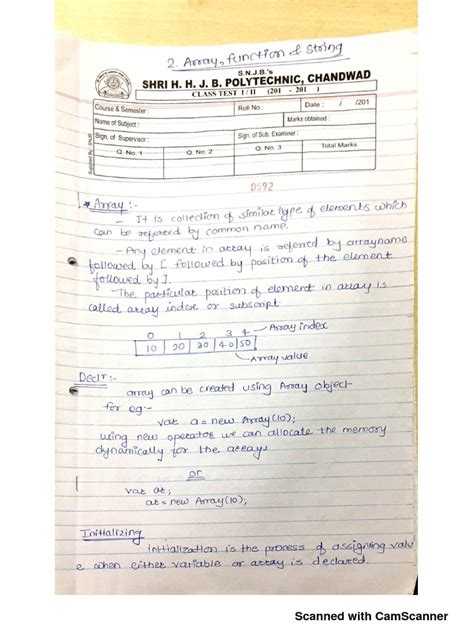 2. Array, function & string
S.N.J.B.'s
SHRI H. H. J. B. POLYTECHNIC, CHANDWAD
CLASS TEST I / II (201 - 201 )
Course & Semester :
Roll No. :
Date : / /201
Name of Subject :
Marks obtained :
Sign. of Supervisor :
Sign. of Sub. Examiner :
Q. No. 1
Q. No. 2
Q. No. 3
Total Marks
Supplied By : SNJB
0592
* Array :-
- It is collection of similar type of elements which
can be referred by common name.
- Any element in array is referred by arrayname
followed by [ followed by position of the element
followed by ].
- The particular position of element in array is
called array index or subscript.
0 1 2 3 4 - Array index
10 20 30 40 50
Array value
Declr :-
array can be created using Array object
for eg :-
var a = new Array(10);
using new operator we can allocate the memory
dynamically for the arrays
or
var ar;
ar = new Array(10);
Initializing
initialization is the process of assigning valu
e when either variable or array is declared.
Scanned with CamScanner